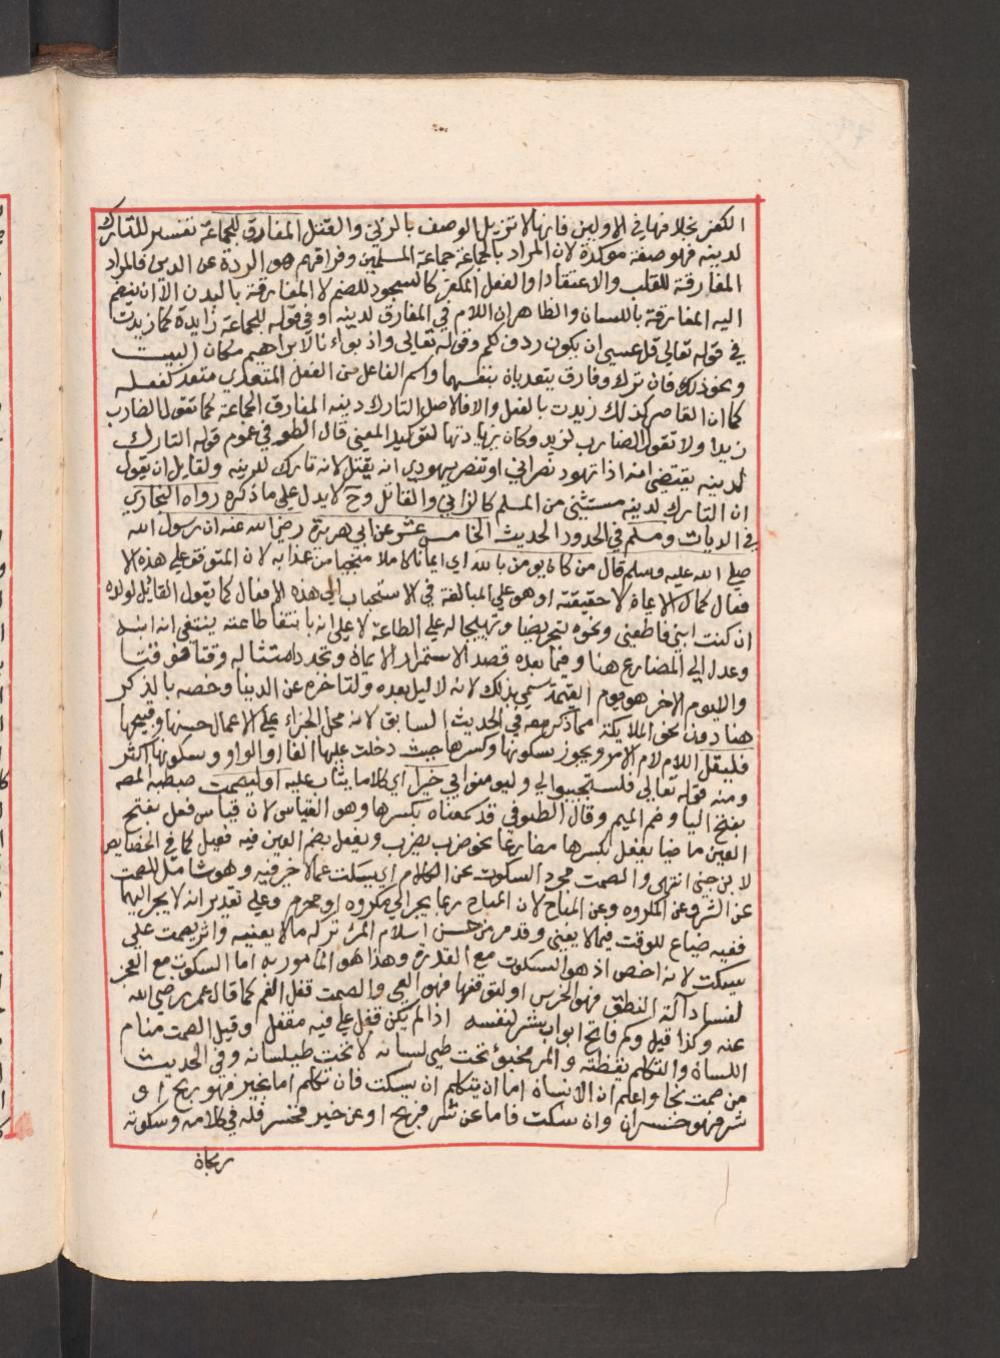 الكفر بخلافها في الاولين فانها لا تزيل الوصف بالزني والقتل المفارق للجماعة تفسير للتارك
لدينه فهو صفة موكدة لان المراد بالجماعة جماعة المسلمين وفراقهم هو الردة عن الدين فالمراد
المفارقة للقلب والاعتقاد او الفعل المكفر كالسجود للصنم لا المفارقة بالبدن الا ان ينضم
اليه المفارقة باللسان والظاهر ان اللام في المفارق لدينه او في قوله للجماعة زايدة كما زيدت
في قوله تعالي قل عسي ان يكون ردف لكم وقوله تعالي واذ بوانا لابراهيم مكان البيت
ونحو ذلك فان ترك وفارق يتعديان بنفسهما واسم الفاعل من الفعل المتعدي متعد كفعله
كما ان القاصر كذلك زيدت بالفعل والا فالاصل التارك دينه المفارق الجماعة كما تقول الضارب
زيدا ولا تقول الضارب لزيد وكان زيادتها لتوكيد المعني قال الطوفي عموم قوله التارك
لدينه يقتضي انه اذا تهود نصراني او تنصر يهودي انه يقتل لانه تارك لدينه ولقايل ان يقول
ان التارك لدينه مستثني من المسلم كالزاني والقاتل وح لا يدل علي ما ذكره رواه البخاري
في الديات ومسلم في الحدود الحديث الخامس عشر عن ابي هريرة رضي الله عنه ان رسول الله
صلي الله عليه وسلم قال من كان يومن بالله اي ايمانا كاملا منجيا من عذابه لان المتوقف علي هذه الا
فعال كمال الايمان لا حقيقته او هو علي المبالغة في الاستجلاب الي هذه الافعال كما يقول القائل لولده
ان كنت ابني فاطعني ونحوه تحريضا وتهييجا له علي الطاعة لا علي انه بانتفا طاعته ينتفي انه ابنه
وعدل الي المضارع هنا وفيما بعده قصد الاستمرار الايمان وتجدد امتثاله وقتا فوقتا
واليوم الاخر هو يوم القيمة سمي بذلك لانه لا ليل بعده ولتاخره عن الدنيا وخصه بالذكر
هنا دون نحو الملايكة مما ذكر معه في الحديث السابق لانه محل الجزاء علي الاعمال حسنها وقبيحها
فليقل اللام لام الامر ويجوز سكونها وكسرها حيث دخلت عليها الفا او الواو وسكونها اكثر
ومنه قوله تعالي فليستجيبوا لي وليومنوا بي خيرا اي كلاما يثاب عليه او ليصمت ضبطه المصه
بفتح اليا وضم الميم وقال الطوفي قد سمعناه بكسرها وهو القياس لان قياس فعل بفتح
العين ماضيا يفعل بكسرها مضارعا نحو ضرب يضرب ويفعل بضم العين فيه فعيل كما في الخصايص
لابن جني انتهي والصمت مجرد السكوت عن الكلام اي يسكت عما لا خير فيه وهو شامل للصمت
عن الشر وعن المكروه وعن المباح لان المباح ربما يجر الي مكروه او محرم وعلي تقدير انه لا يجر اليهما
ففيه ضياع للوقت فيما لا يعني وقد مر من حسن اسلام المرء تركه ما لا يعنيه واثر يصمت علي
يسكت لانه اخص اذ هو السكوت مع القدرة وهذا هو المامور به اما السكوت مع العجز
لفساد آلة النطق فهو الخرس او لتوقفها فهو العي والصمت قفل الفم كما قال عمر رضي الله
عنه وكذا قيل وكم فاتح ابواب شر لنفسه اذا لم يكن قفل علي فيه مقفل وقيل الصمت منام
اللسان والتكلم يقظته والمر مخبوؤ تحت طي لسانه لا تحت طيلسانه وفي الحديث
من صمت نجا واعلم ان الانسان اما ان يتكلم ان يسكت فان تكلم اما بخير فهو ربح او
شر فهو خسران وان سكت فاما عن شر فربح او عن خير فخسر فله في كلامه وسكوته
ربحان